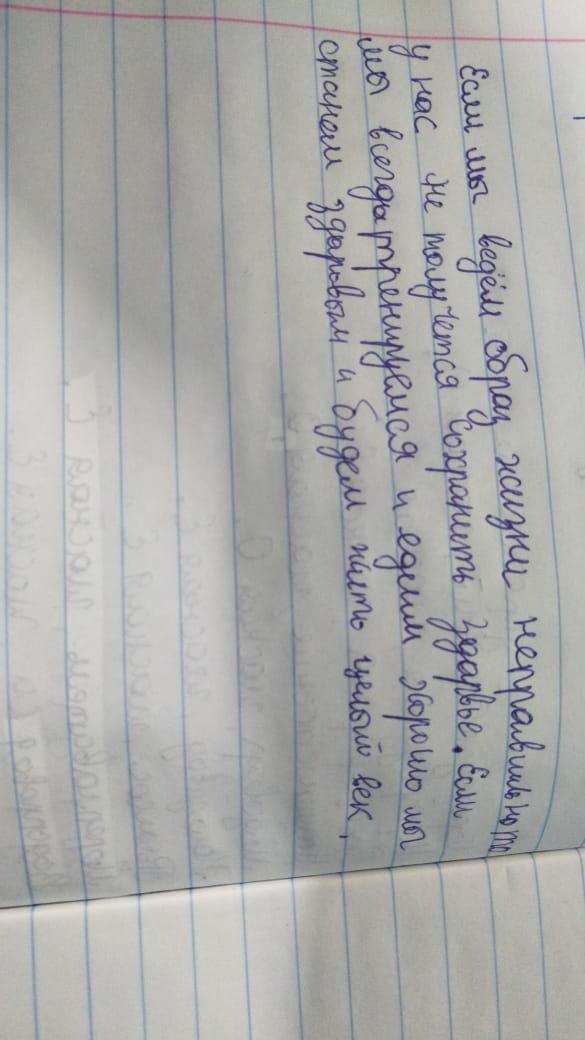 Если мы ведём образ жизни неправильно то
у нас не получется сохранить здарвье. Если
мы всегда тренируемся и едим хорошо мы
станем здаровым и будем жить целый век,